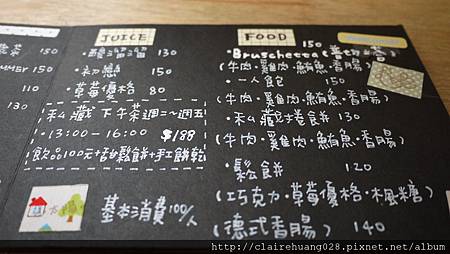 JUICE
酪 130
初戀 150
草莓優格 80
私藏下午茶週二~週五
13:00-16:00 $188
飲品100元+甜鬆餅+手工餅乾
基本消費100/人
茶 150
MMER 150
110
130
FOOD
150
Bruschetta
(牛肉·雞肉·鮪魚·香腸)
一人食 150
(牛肉·雞肉·鮪魚·香腸)
私藏捲食 130
(牛肉·雞肉·鮪魚·香腸)
鬆餅 120
(巧克力·草莓優格·楓糖)
(德式香腸) 140
http://clairehuang028.pixnet.net/album